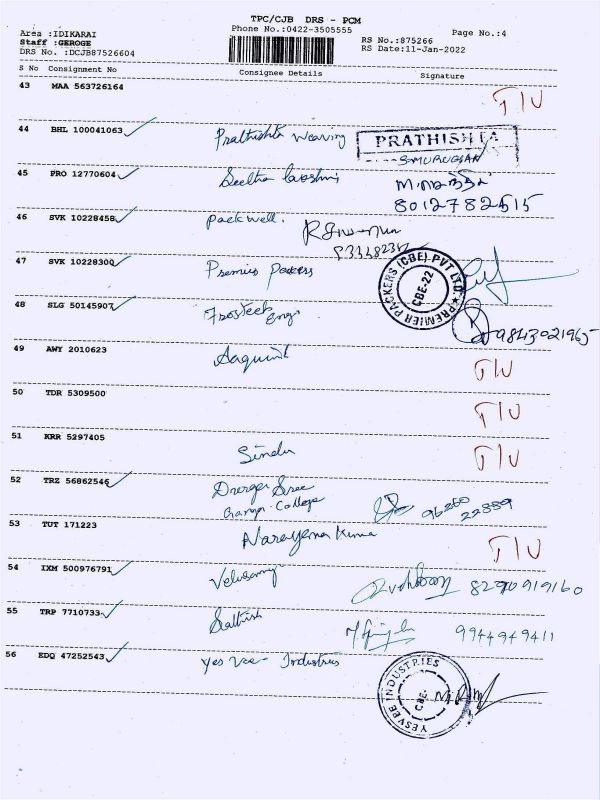 TPC/CJB DRS - PCM
Area :IDIKARAI
Phone No.:0422-3505555
Page No.:4
Staff :GEROGE
RS No.:875266
DRS No. :DCJB87526604
RS Date:11-Jan-2022
S No Consignment No Consignee Details Signature
43 MAA 563726164 T/U
44 BHL 100041063 Prathishta weaving PRATHISHTA
S.MURUGESAN
45 PRO 12770604 Seetha
8012782515
46 SVK 10228458 Packwell.
47 SVK 10228300 Premier Packers PREMIER PACKERS (CBE) PVT LTD CBE-22
48 SLG 50145907 Frosteek Engg 9843021965
49 AWY 2010623 T/U
50 TDR 5309500 T/U
51 KRR 5297405 Sindu T/U
52 TRZ 56862546 Sree
College 96260
22889
53 TUT 171223 Narayana Kuma T/U
54 IXM 500976791 Velusamy 8290919160
55 TRP 7710733 Sathish 9944949411
56 EDQ 47252543 Yes Vee Industries YESVEE INDUSTRIES CBE-